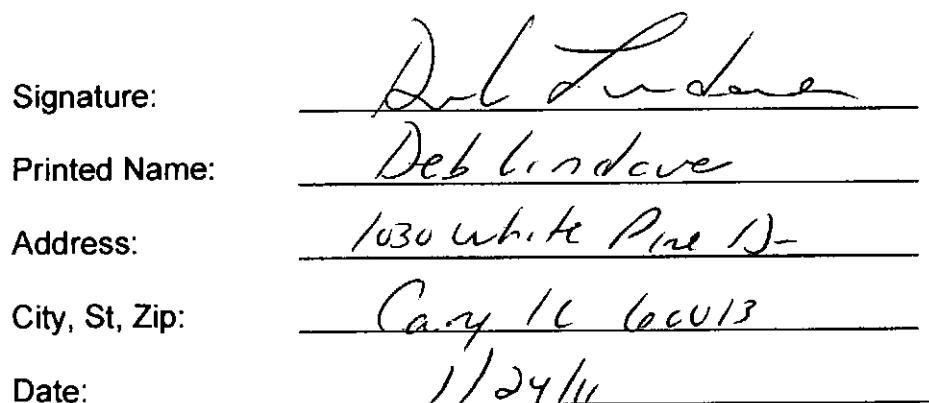 Signature: Deb Lindaver
Printed Name: Deb Lindaver
Address: 1030 White Pine Dr
City, St, Zip: Cary IL 60013
Date: 1/24/11